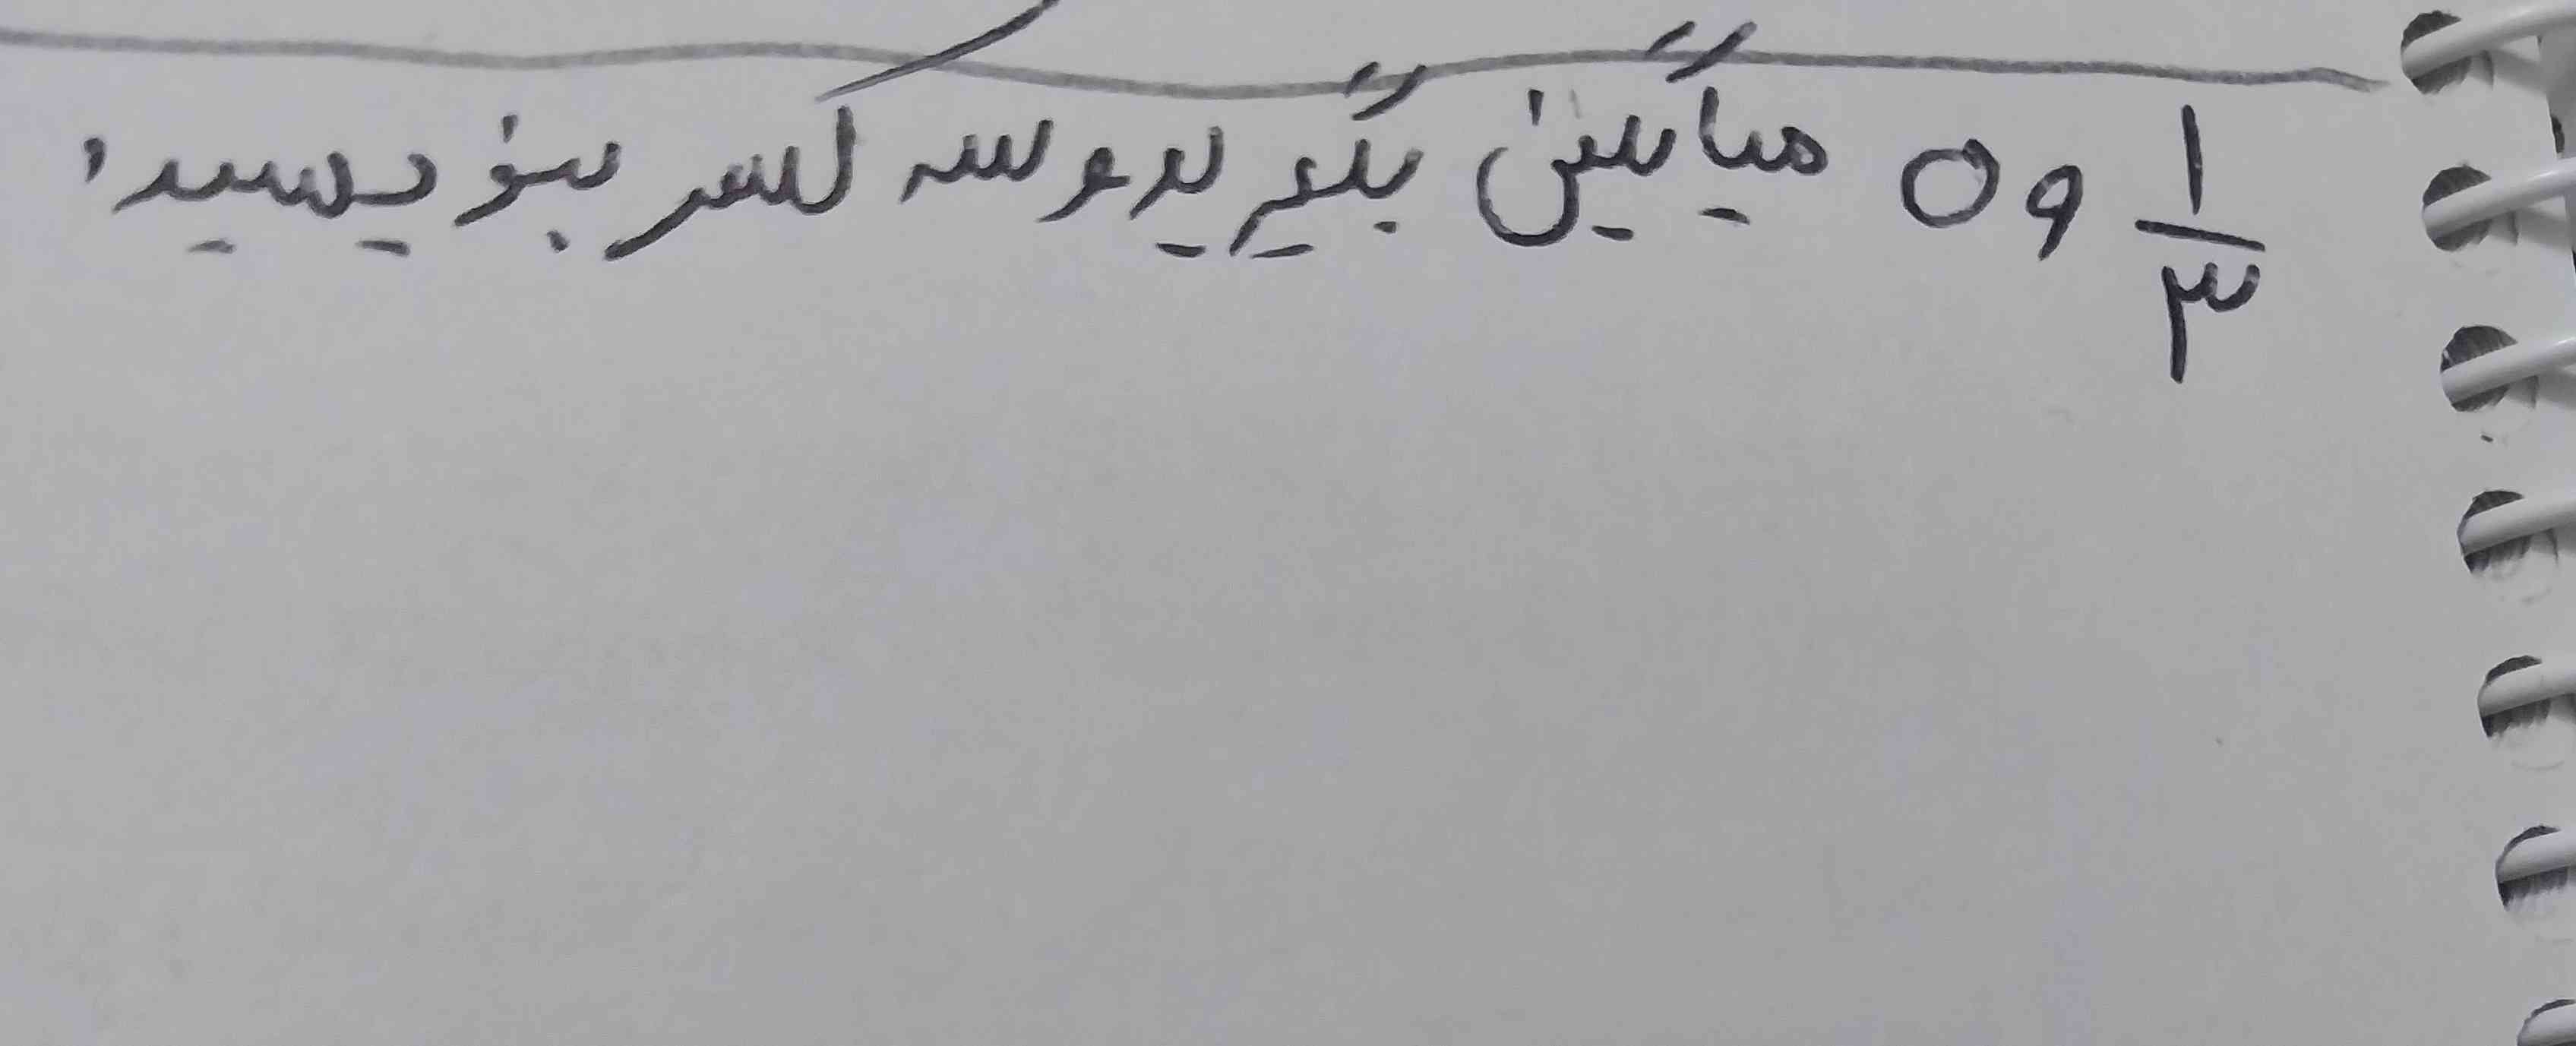 ۱/۳ و ۵ میانگین بگیرید و سه کسر بنویسید.